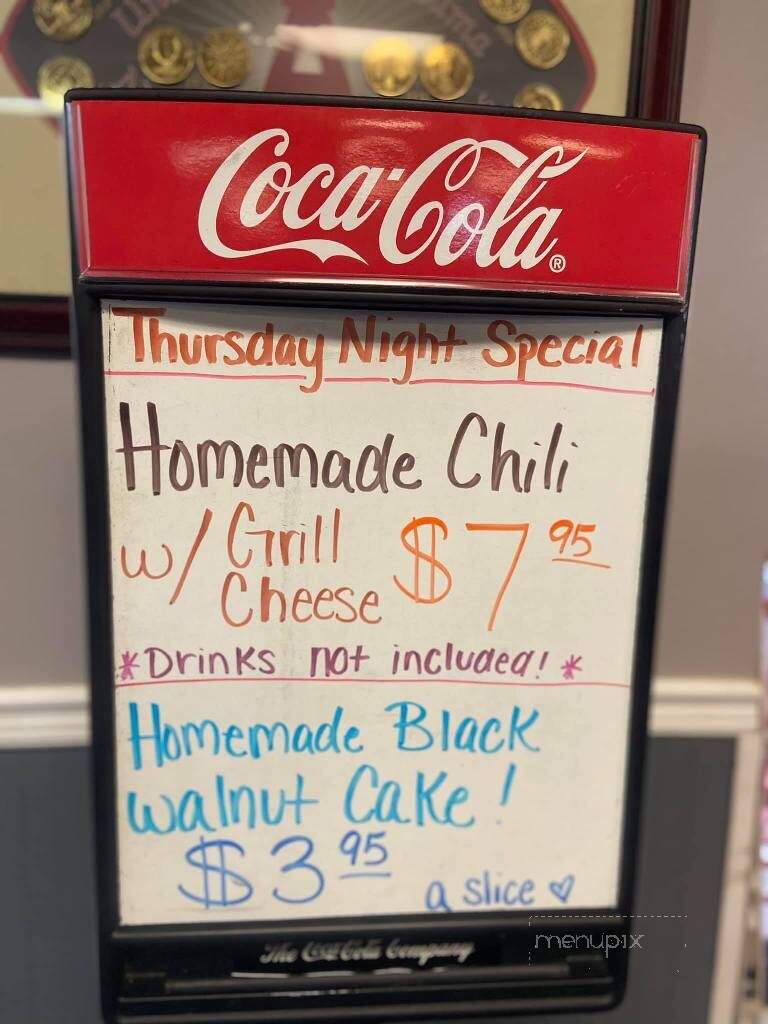 Coca-Cola®
Thursday Night Special
Homemade Chili
w/ Grill Cheese $7 95
*Drinks not included! *
Homemade Black
walnut Cake!
$3 95 a slice ♡
The Coca-Cola Company
menupix